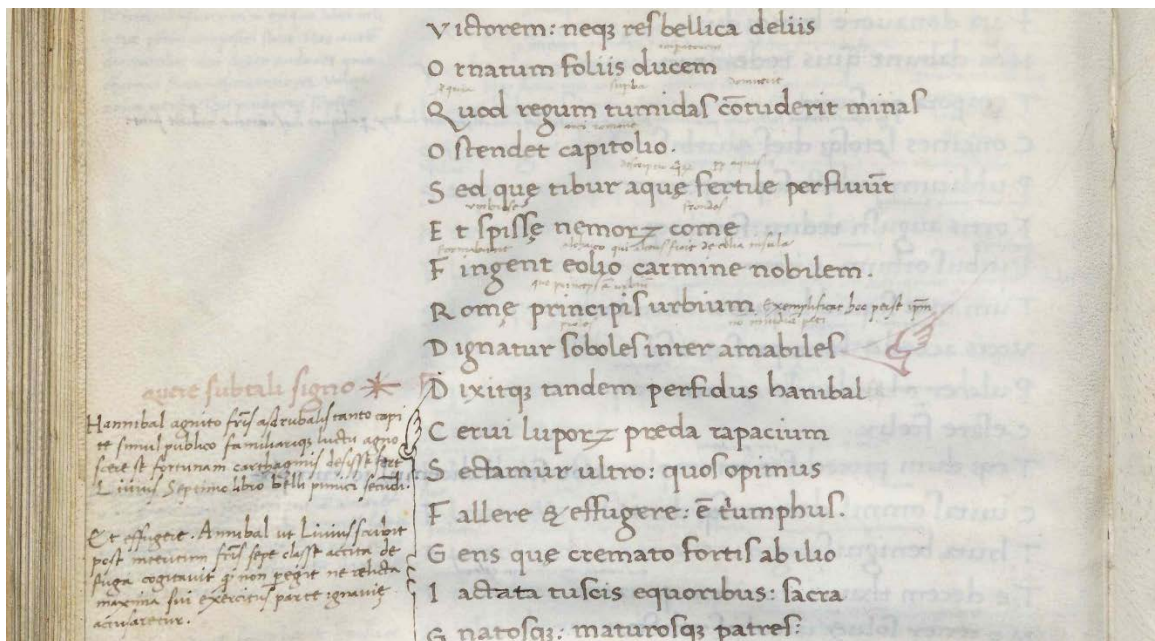 Victorem: neqꝫ res bellica deliis
Ornatum foliis ducem
Quod regum tumidas cōtuderit minas
Ostendet capitolio.
Sed quę tibur aquę fertile perfluūt
Et spissę nemorꝝ comę
formabunt alchaico qui alceus fuit de eolia insula
Fingent eolio carmine nobilem.
Romę principis urbium exemplificat hoc
Dignatur soboles inter amabiles
quere sub tali signo
Dixitqꝫ tandem perfidus hanibal
Cerui luporꝝ preda rapacium
Sectamur ultro: quos opimus
Fallere & effugere: ē triumphus.
Gens quę cremato fortis ab ilio
Iactata tuscis equoribus: sacra
Gnatosqꝫ: maturosqꝫ patres:
Hannibal agnito fr̄is asdrubalis tanto capi
te simul publico familiariqꝫ luctu agno
scere se fortunam carthaginis
Liuius Septimo libro belli punici secūdi
Et effugere. Annibal ut Liuius scribit
post interitum fr̄is sepe classe accita de
fuga cogitauit ne relicta
maxima sui exercitus parte ignauię
accusaretur.